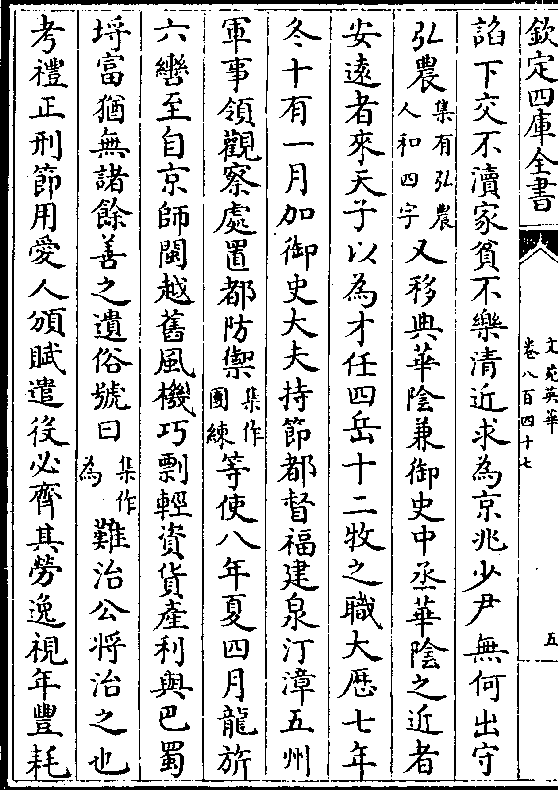 欽定四庫全書
文苑英華
卷八百四十七
五
諂下交不瀆家貧不樂清近求為京兆少尹無何出守
弘農集有弘農人和四字又移典華陰兼御史中丞華陰之近者
安遠者來天子以為才任四岳十二牧之職大厯七年
冬十有一月加御史大夫持節都督福建泉汀漳五州
軍事領觀察處置都防禦集作團練等使八年夏四月龍旂
六轡至自京師閩越舊風機巧剽輕資貨產利與巴蜀
埒富猶無諸餘善之遺俗號曰集作為難治公將治之也
考禮正刑節用愛人頒賦遣役必齊其勞逸視年豐耗